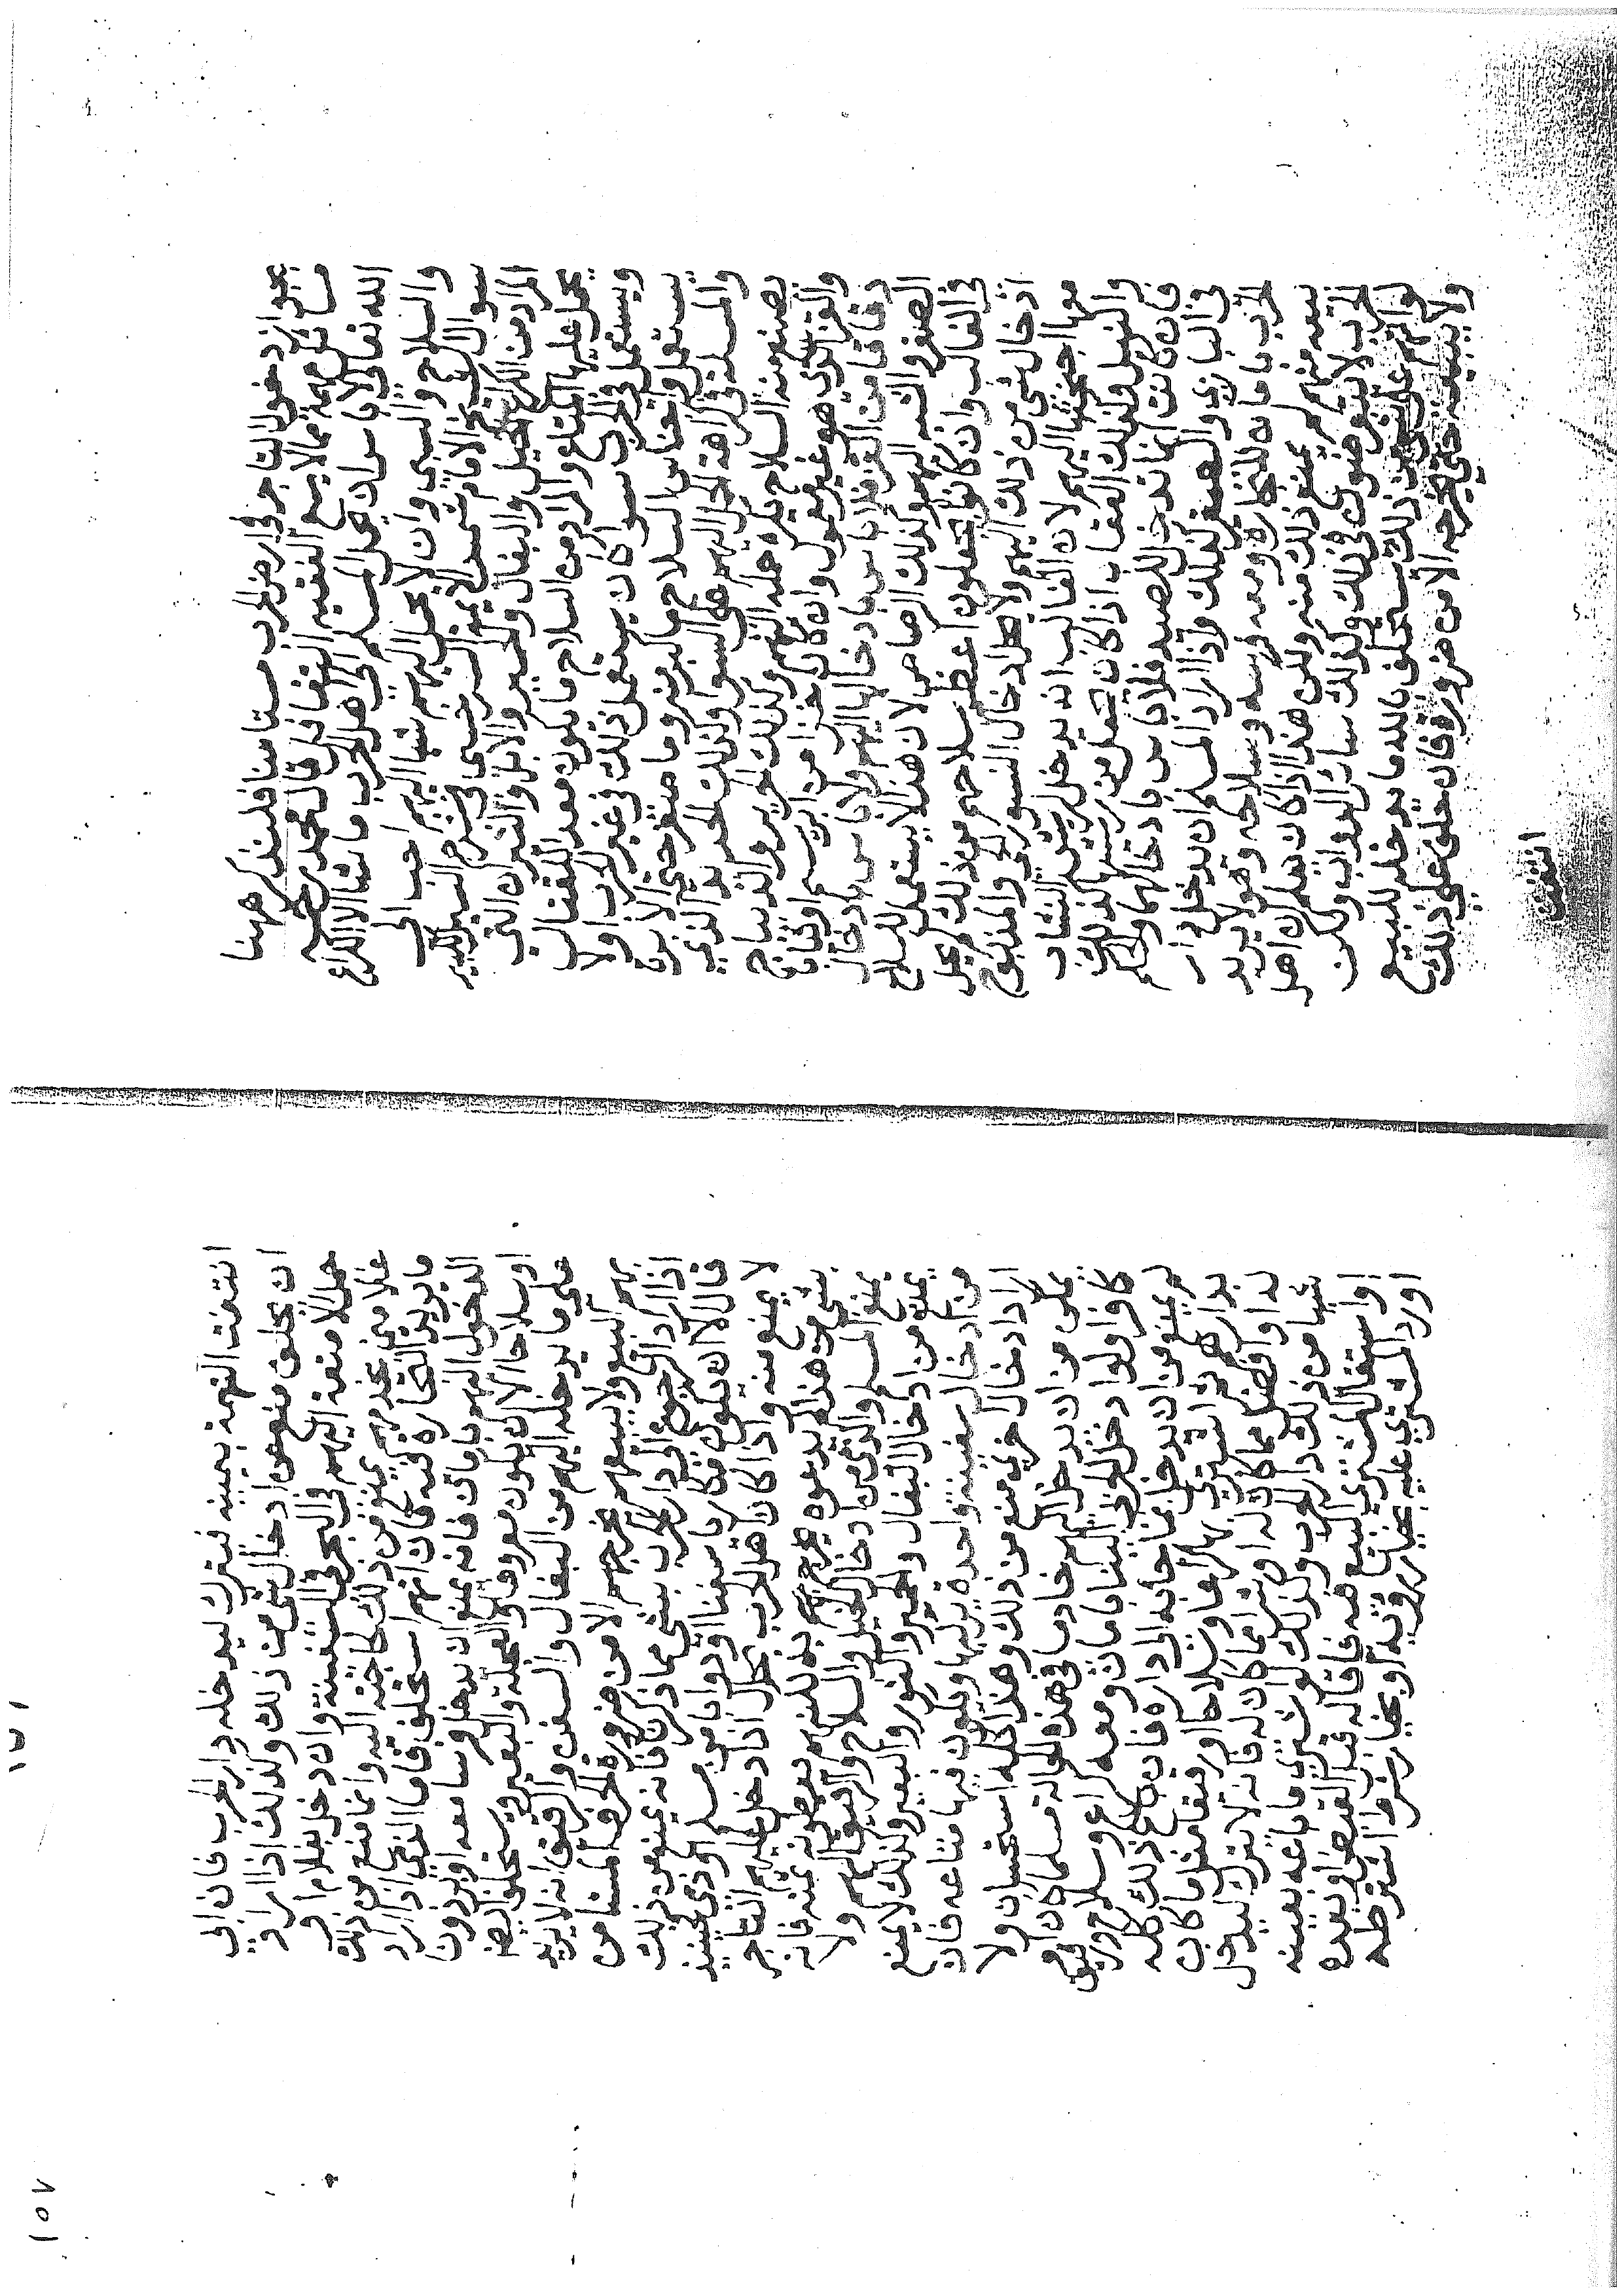 يجوز دخول التاجر في ارض الحرب مستامنا فلنذكر ههنا
ما تكلم به مما لا يسع الفقيه التغافل قال محمد رحمه
الله تعالى لا باس بان يحمل المسلم الى اهل الحرب ما شا الا الكراع
والسلاح والسبي وان لا يحمل اليهم شيا اليهم احب الى
الشيخ الامام شمس الايمة السرخسي في شرح السير الكبير
المراد من الكراع الخيل والبغال والحمير والابل والثيران التي
يحمل عليها المتاع والمراد من السلاح ما يكون معدا للقتال
ويستعمل في الحرب سوا كان يستعمل ذلك في غير الحرب او لا
يستعمل واجناس السلاح ما كبر منه وما صغر حتى الابرة
والمسلة في كراهة الحمل اليهم على السوا وكذلك الحديد الذي
يصنع منه السلاح يكره حمله اليهم وكذلك الحرير والديباج
والقز الذي هو غير معمول وان كان خزا من ابريسم او ثيابا
رقاقا من القز فلا باس بادخالها اليهم ولا باس بادخال
الصفر والشبه اليهم وكذلك الرصاص لان هذا لا يستعمل للسلاح
في الغالب وان كانوا يجعلون اعظم سلاحهم من ذلك لم يحل
ادخال شي من ذلك اليهم ولا يحل ادخال النسور الحي والمذبوح
معها اجنحتها اليهم لان الغالب انه يدخل لريش النشاب
والنبل وكذلك العقاب اذا كان يجعل من ريشها كذلك
فان كانت انما تدخل للصيد فلا باس بادخالها والحكم
في البازي والصقر كذلك واذا اراد المسلم ان يدخل دار
الحرب بامان للتجارة ومعه فرسه وسلاحه وهو لا يريد
بيعه منهم لم يمنع ذلك منه ولكن هذا اذا كان يعلم ان اهل
الحرب لا يتعرضون في ذلك وكذلك ساير الدواب ولكن
ان اتهم على شي من ذلك يستحلف بالله ما يدخله للبيع
ولا يبيعه حتى يخرجه الا من ضرورة فان حلف على ذلك
انتفت
انتفت التهمة بيمينه فيترك ليدخله دار الحرب فان ابى
ان يحلف منع من ادخال شي من ذلك وكذلك اذا اراد
حمل الامتعة اليهم في البحر في السفينة وان دخل بغلام او
غلامين يخدمهم لم يمنع من ذلك لحاجته اليه وانما منع من ذلك
ما يريد التجارة فيه فان اتهم استحلف فاما الذمي اذا اراد
الدخول اليهم بامان فانه يمنع ان يدخل فرسا معه او برذون
او سلاحا الا ان يكون معروفا والعجلة والبعير ويستحلف ايضا
على ما يدخله اليهم من البغال والسفن والرقيق انه لا يريد
بهم البيع ولا يبيعهم حتى يخرجهم الا من ضرورة الحربي المستامن
اذا اراد الرجوع الى دار الحرب بشي مما ذكرنا فانه يمنع من ذلك
قال الا ان يكون مكاريا سفنا او دوابا من مسلم او ذمي فحينئذ
لا يمنع منه واذا كان اهل الحرب بحال اذا دخل عليهم التاجر
بشي من هذا لم يدعوه يخرج به لكنهم يعطونه ثمنه فانه
يمنع المسلم والذمي من ادخال الخيل والسلاح والرقيق اليهم ولا
يمنع من ادخال البغال والحمير والثور والبعير وكذلك لا يمنع
من ادخال سفينة واحدة يركبها ويكون فيها متاعه فان
اراد ادخال اخرى منع من ذلك وهذا كله استحسان ولا
يمكن من ان يدخل اليهم خادما في هذه الحالة مسلما كان او
كافرا ولو دخل الحربي الينا بامان ومعه كراع وسلاح ورقيق
لم يمنع من ان يدخل بما جا به الى داره فان باع ذلك كله
بدراهم ثم اشترى بها كراعا وسلاحا او رقيقا مثل ما كان
له او افضل مما كان له او شرا مما كان له فانه لا يترك ليدخل
شيا من ذلك دار الحرب وكذلك لو اشترى ما باعه بعينه
او استقال المشتري البيع فيه فاقاله قبل القبض او بعده
او رد المشتري عليه بخيار روية او بخيار شرط اشترطه
١٥٧